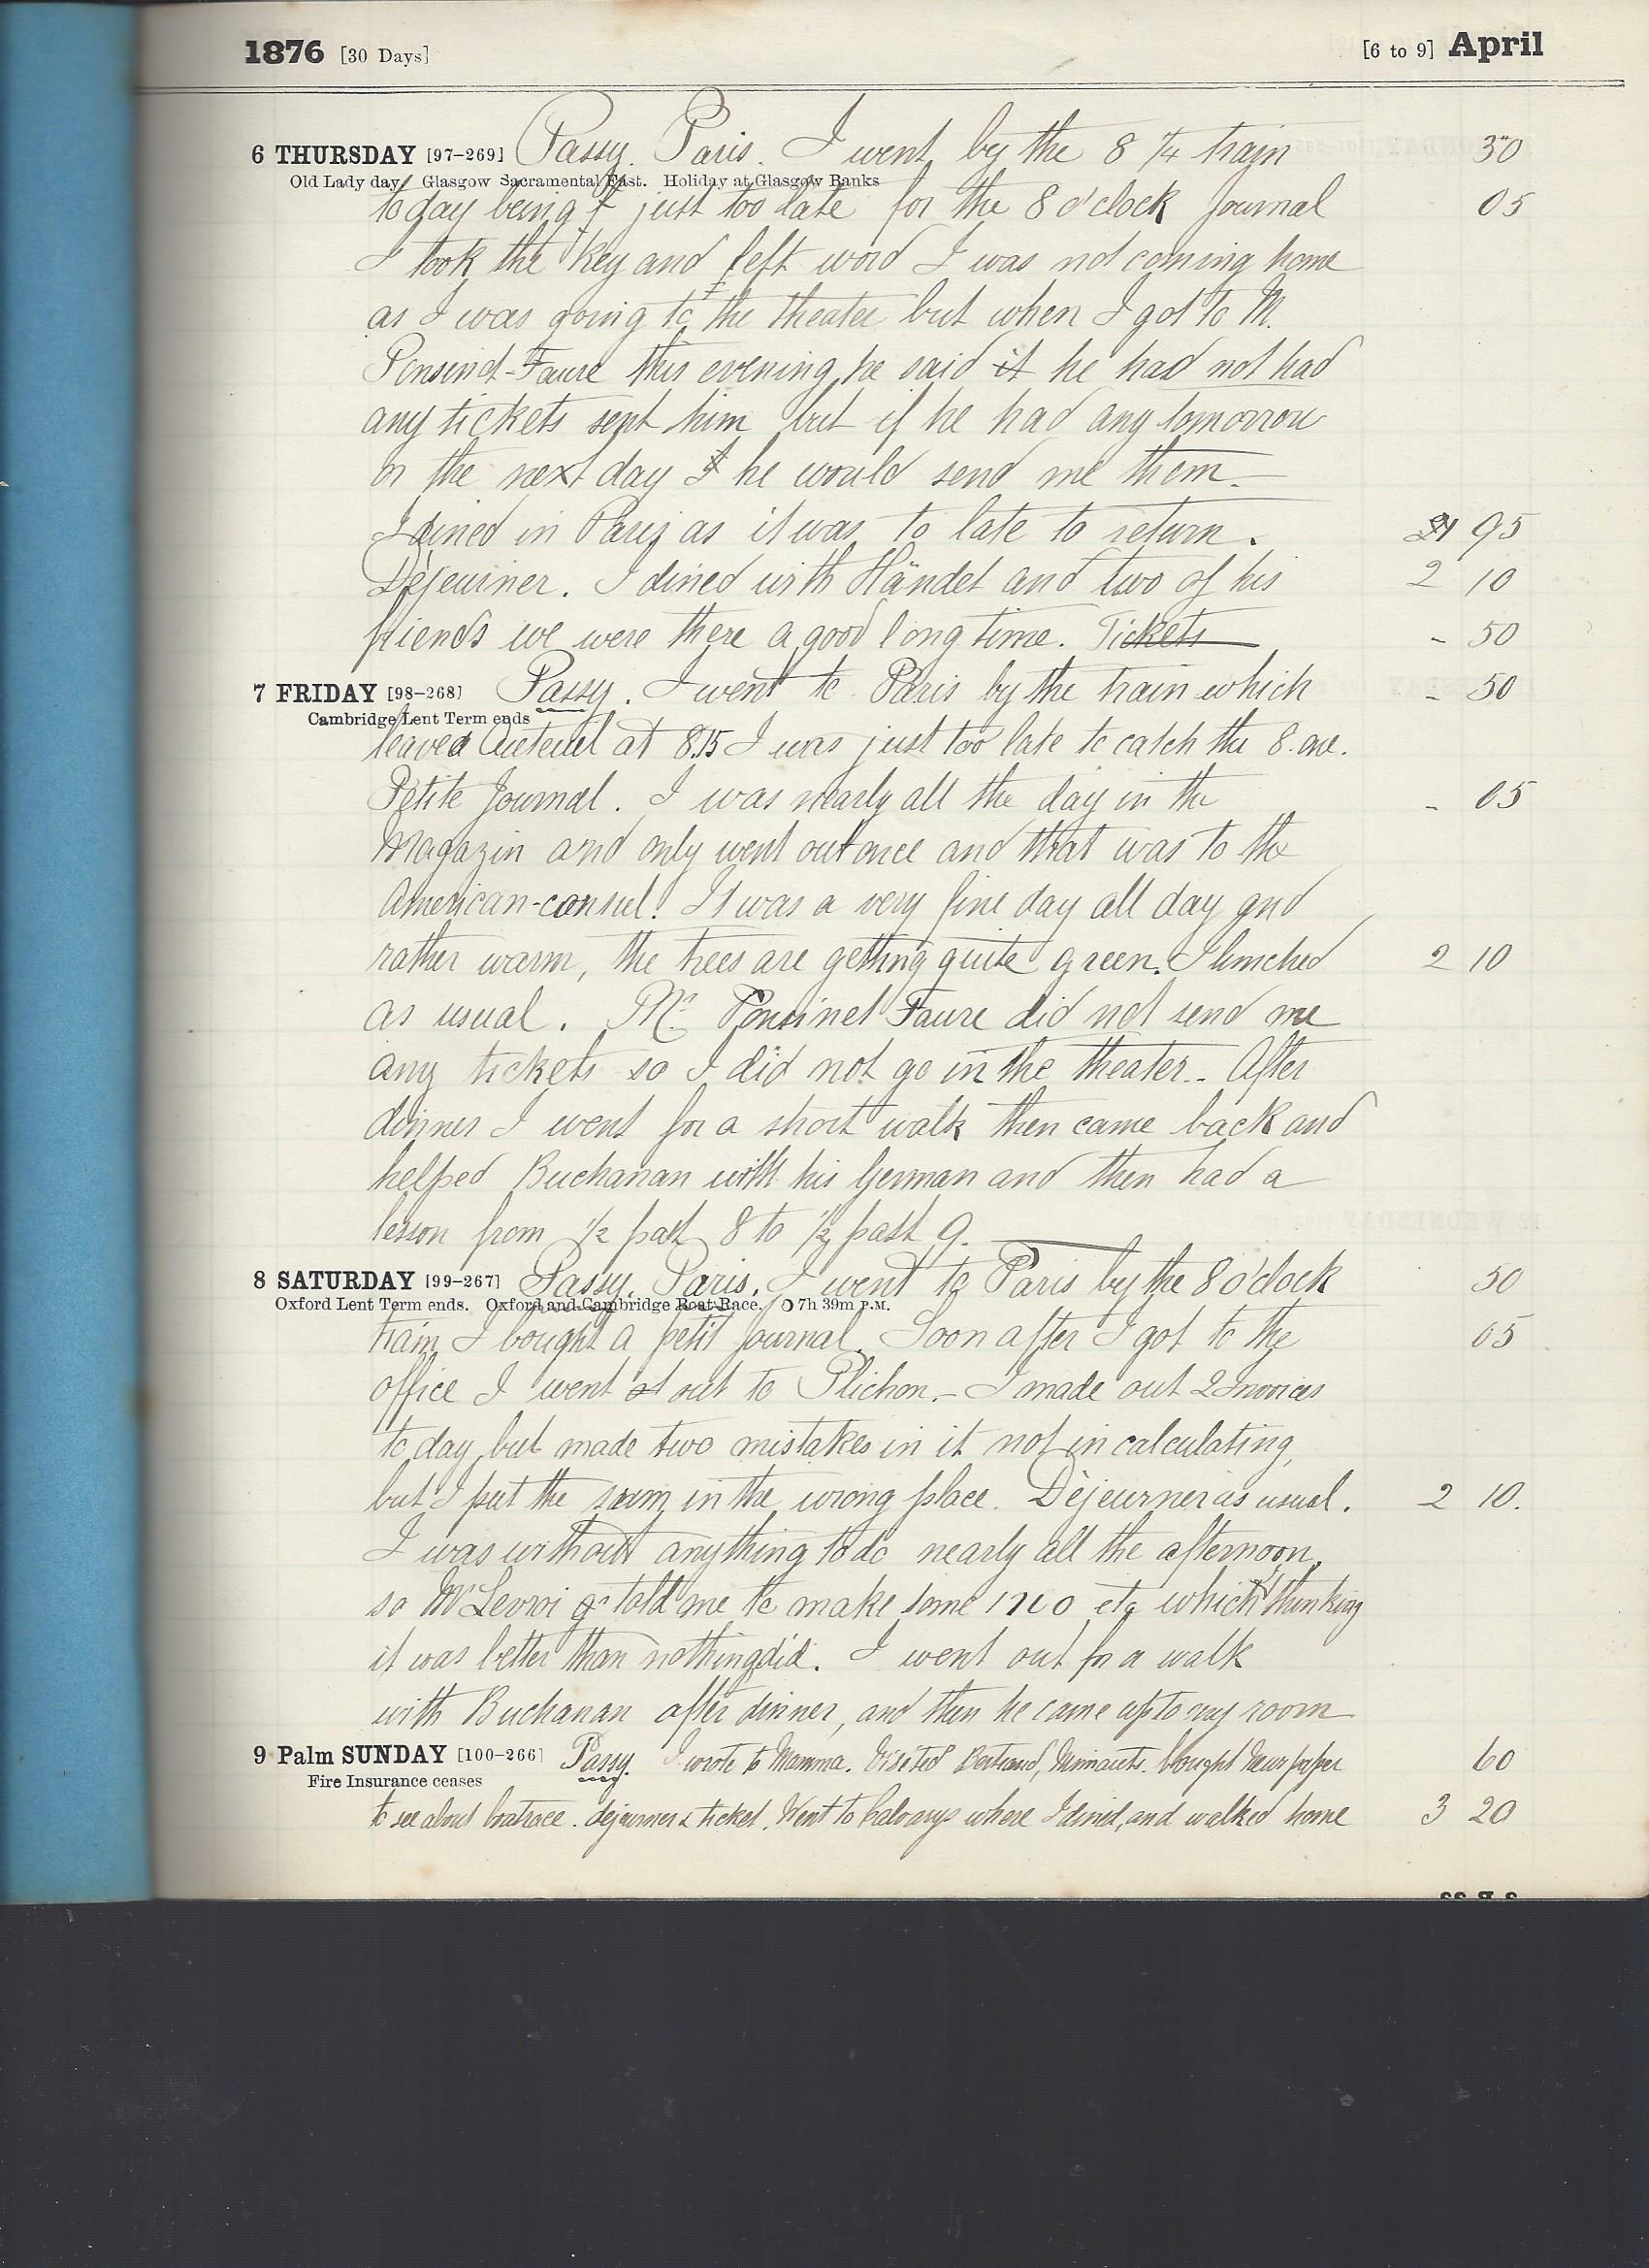 1876 [30 Days] [6 to 9] April
6 THURSDAY [97-269] Passy. Paris. I went by the 8 ¼ train 30
Old Lady day. Glasgow Sacramental Fast. Holiday at Glasgow Banks
to day being just too late for the 8 o'clock Journal 05
I took the key and left word I was not coming home
as I was going to the theater but when I got to M.
Ponsinet-Faure this evening he said it he had not had
any tickets sent him but if he had any tomorrow
or the next day I he would send me them.
I dined in Paris as it was to late to return. 95
Dèjeurner. I dined with Händel and two of his 2 10
friends we were there a good long time. Tickets - 50
7 FRIDAY [98-268] Passy. I went to Paris by the train which - 50
Cambridge Lent Term ends
leaved Auteuil at 8.15 I was just too late to catch the 8. one.
Petite Journal. I was nearly all the day in the - 05
Magazin and only went out once and that was to the
American-consul! It was a very fine day all day and
rather warm, the trees are getting quite green. I lunched 2 10
as usual. Mr. Ponsinet Faure did not send me
any tickets so I did not go in the theater.. After
dinner I went for a short walk then came back and
helped Buchanan with his German and then had a
lesson from ½ past 8 to ½ past 9.
8 SATURDAY [99-267] Passy. Paris. I went to Paris by the 8 o'clock 50
Oxford Lent Term ends. Oxford and Cambridge Boat Race. O 7h 39m P.M.
train I bought a petit Journal. Soon after I got to the 05
office I went out to Plichon.- I made out 2 Invoices
to day but made two mistakes in it not in calculating,
but I put the sum in the wrong place. Dèjeurner as usual. 2 10.
I was without anything to do nearly all the afternoon,
so Mr Levroi told me to make some etc which thinking
it was better than nothing did. I went out for a walk
with Buchanan after dinner, and then he came up to my room
9 Palm SUNDAY [100-266] Passy. I wrote to Mamma. Visited Bertrand, bought Newspaper 60
Fire Insurance ceases
to see about boatrace. dejeurner & ticket. Went to where I dined, and walked home 3 20